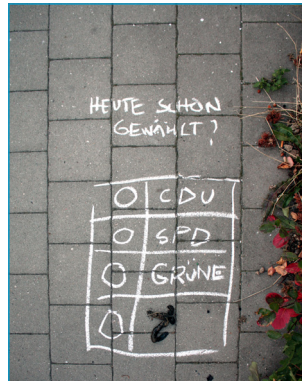 HEUTE SCHON
GEWÄHLT?
CDU
SPD
GRÜNE